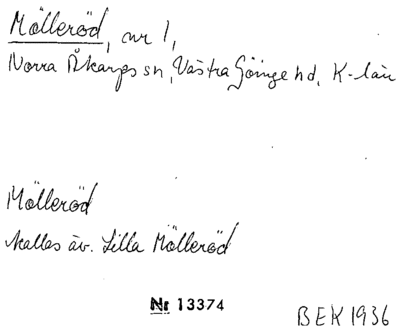 Mölleröd, nr 1,
Norra Åkarps sn, Västra Göinge hd, K-län
Mölleröd
kallas äv. Lilla Mölleröd
Nr 13374
BEK 1936